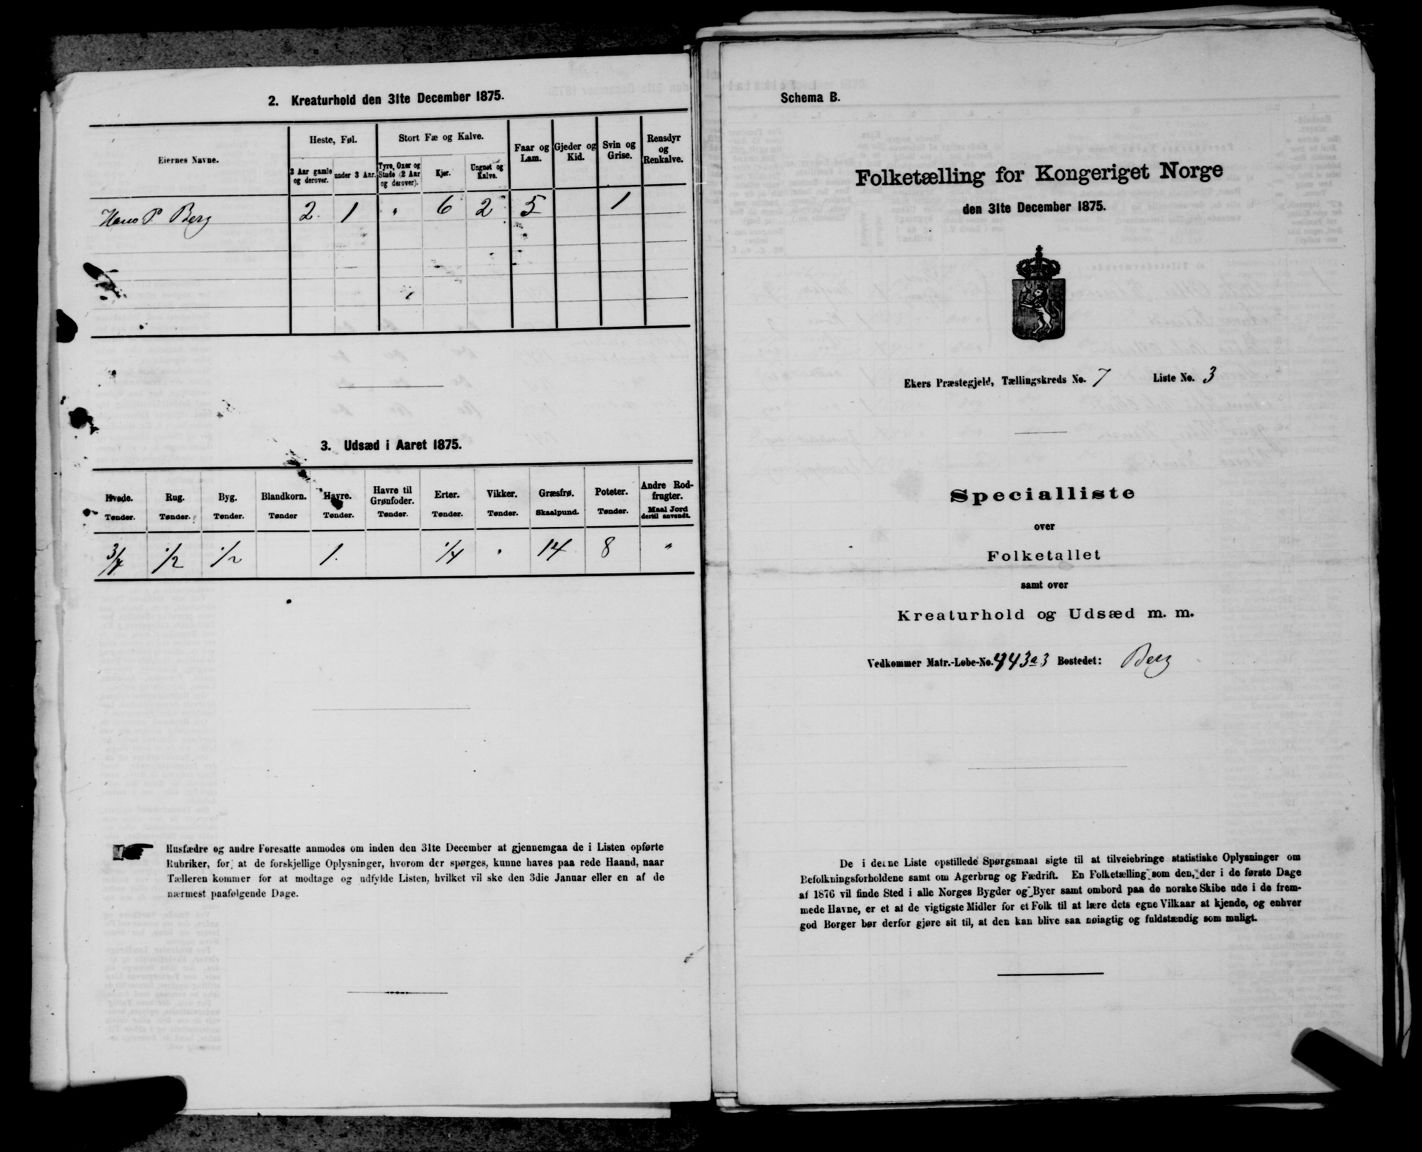 2. Kreaturhold den 31te December 1875.
Eiernes Navne.
Heste, Føl.
Stort Fæ og Kalve.
Faar og Lam.
Gjeder og Kid.
Svin og Grise.
Rensdyr og Renkalve.
3 Aar gamle og derover.
under 3 Aar.
Tyre, Oxer og Stude (2 Aar og derover).
Kjør.
Ungnøt og Kalve.
Hans P Berg 2 1 " 6 2 5 1
3. Udsæd i Aaret 1875.
Hvede. Rug. Byg. Blandkorn. Havre. Havre til Grønfoder. Erter. Vikker. Græsfrø. Poteter. Andre Rodfrugter.
Tønder. Tønder. Tønder. Tønder Tønder. Tønder. Tønder. Tønder. Skaalpund. Tønder. Maal Jord dertil anvendt.
3/4 1/2 1/2 1 1/4 " 14 8 "
Husfædre og andre Foresatte anmodes om inden den 31te December at gjennemgaa de i Listen opførte
Rubriker, for at de forskjellige Oplysninger, hvorom der spørges, kunne haves paa rede Haand, naar
Tælleren kommer for at modtage og udfylde Listen, hvilket vil ske den 3die Januar eller en af de
nærmest paafølgende Dage.
Schema B.
Folketælling for Kongeriget Norge
den 31te December 1875.
Ekers Præstegjeld, Tællingskreds No. 7 Liste No. 3
Specialliste
over
Folketallet
samt over
Kreaturhold og Udsæd m. m.
Vedkommer Matr.-Løbe-No. 443a3 Bostedet: Berg
De i denne Liste opstillede Spørgsmaal sigte til at tilveiebringe statistiske Oplysninger om
Befolkningsforholdene samt om Agerbrug og Fædrift. En Folketælling som den, der i de første Dage
af 1876 vil finde Sted i alle Norges Bygder og Byer samt ombord paa de norske Skibe ude i de frem-
mede Havne, er et af de vigtigste Midler for et Folk til at lære dets egne Vilkaar at kjende, og enhver
god Borger bør derfor gjøre sit til, at den kan blive saa nøiagtig og fuldstændig som muligt.